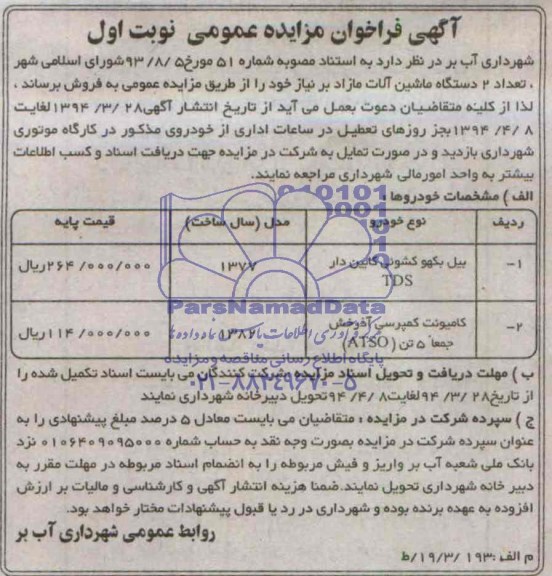 آگهی فراخوان مزایده عمومی نوبت اول
شهرداری آب بر در نظر دارد به استناد مصوبه شماره ۵۱ مورخ۵ /۸/ ۹۳شورای اسلامی شهر
، تعداد ۲ دستگاه ماشین آلات مازاد بر نیاز خود را از طریق مزایده عمومی به فروش برساند ،
لذا از کلیه متقاضیان دعوت بعمل می آید از تاریخ انتشار آگهی۲۸ /۳/ ۱۳۹۴لغایت
۸ /۴/ ۱۳۹۴بجز روزهای تعطیل در ساعات اداری از خودروی مذکور در کارگاه موتوری
شهرداری بازدید و در صورت تمایل به شرکت در مزایده جهت دریافت اسناد و کسب اطلاعات
بیشتر به واحد امورمالی شهرداری مراجعه نمایند.
الف ) مشخصات خودروها :
ردیف نوع خودرو مدل (سال ساخت) قیمت پایه
۱- بیل بکهو کشویی کابین دار ۱۳۷۷ ۲۶۴/۰۰۰/۰۰۰ریال
TDS
۲- کامیونت کمپرسی آذرخش ۱۳۸۲ ۱۱۴/۰۰۰/۰۰۰ریال
جمعاً ۵ تن (ATSO)
ParsNamadData
پایگاه اطلاع رسانی مناقصه و مزایده
۰۲۱-۸۸۳۴۹۶۷۰-۵
ب ) مهلت دریافت و تحویل اسناد مزایده :شرکت کنندگان می بایست اسناد تکمیل شده را
از تاریخ۲۸ /۳/ ۹۴لغایت۸ /۴/ ۹۴تحویل دبیرخانه شهرداری نمایند
ج ) سپرده شرکت در مزایده : متقاضیان می بایست معادل ۵ درصد مبلغ پیشنهادی را به
عنوان سپرده شرکت در مزایده بصورت وجه نقد به حساب شماره ۰۱۰۶۴۰۹۰۹۵۰۰۰ نزد
بانک ملی شعبه آب بر واریز و فیش مربوطه را به انضمام اسناد مربوطه در مهلت مقرر به
دبیر خانه شهرداری تحویل نمایند.ضمنا هزینه انتشار آگهی و کارشناسی و مالیات بر ارزش
افزوده به عهده برنده بوده و شهرداری در رد یا قبول پیشنهادات مختار خواهد بود.
روابط عمومی شهرداری آب بر
م الف :۱۹۳ /۱۹/۳/ط